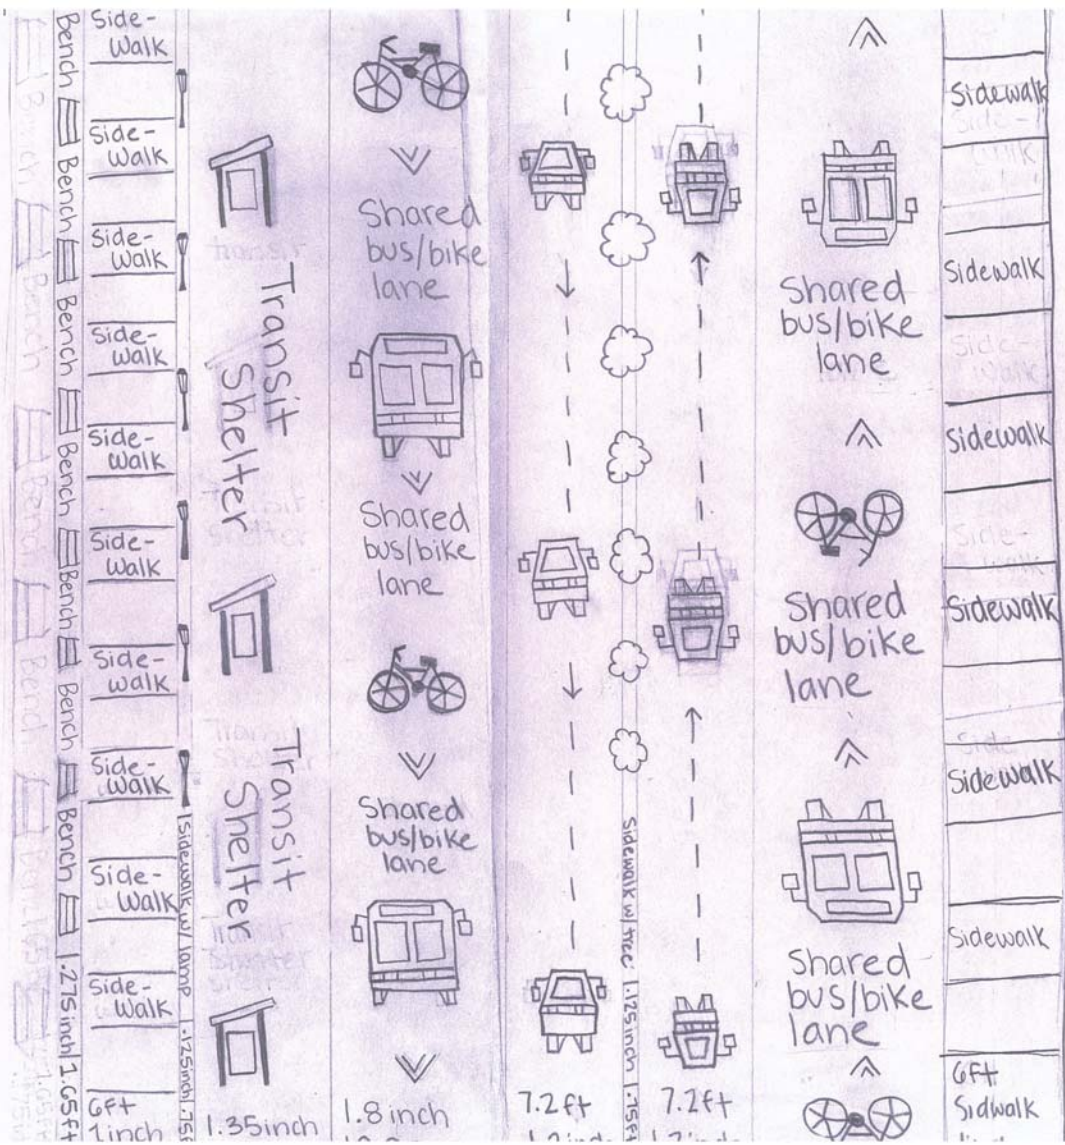 Bench
Bench
Bench
Bench
Bench
Bench
Bench
Bench
.275inch
1.65ft
Side-
walk
Side-
walk
Side-
walk
Side-
walk
Side-
walk
Side-
walk
Side-
walk
Side-
walk
Side-
walk
Side-
walk
6ft
1inch
Sidewalk w/ lamp
.125inch
.75f
Transit
Shelter
Transit
Shelter
1.35inch
Shared
bus/bike
lane
Shared
bus/bike
lane
Shared
bus/bike
lane
1.8 inch
7.2ft
Sidewalk w/ tree
.125inch
.75ft
7.2ft
Shared
bus/bike
lane
Shared
bus/bike
lane
Shared
bus/bike
lane
Sidewalk
Sidewalk
Sidewalk
Sidewalk
Sidewalk
Sidewalk
6ft
Sidwalk